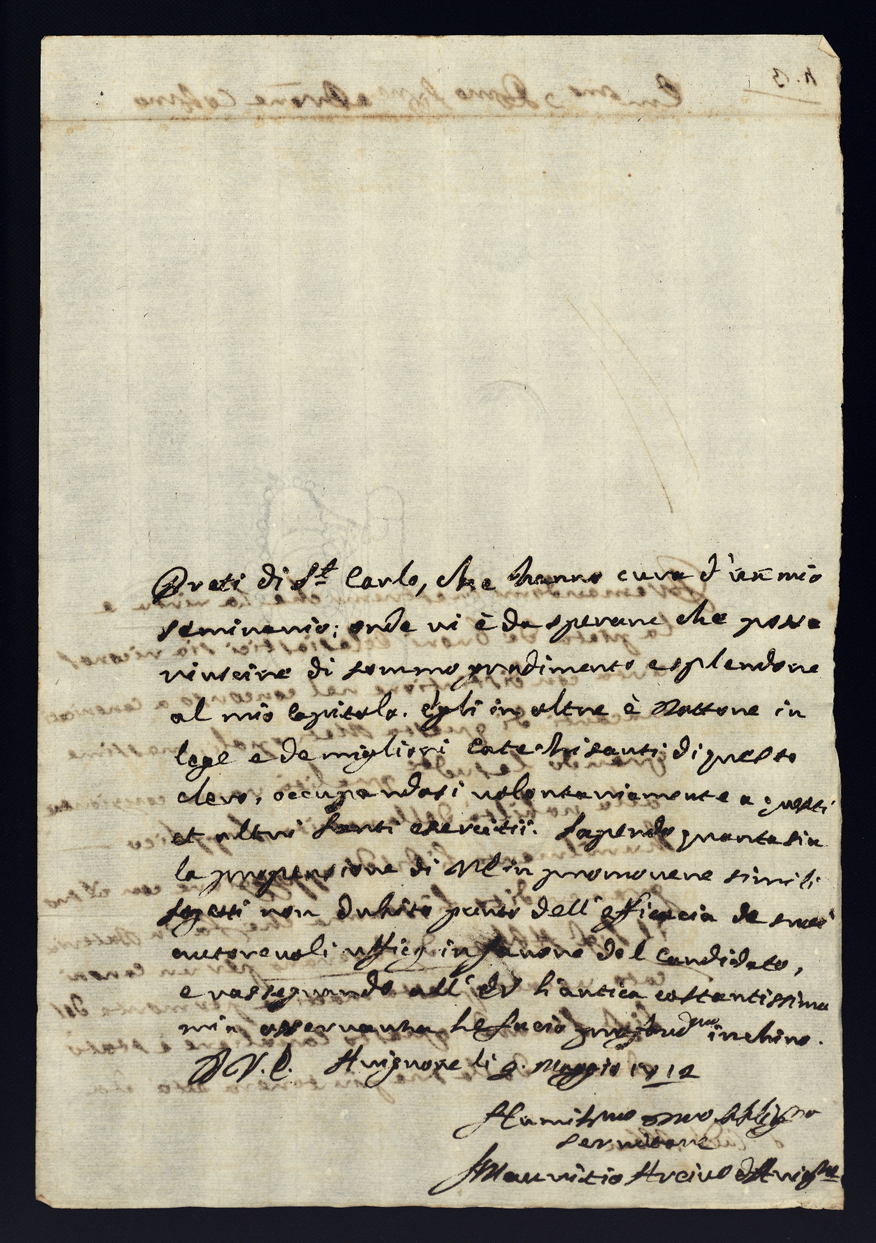 Preti di S.t Carlo, che hanno cura d'un mio
seminario; onde vi è da sperare che possa
riuscire di sommo profimento e splendore
al mio Capitolo. Egli in oltre è Dottore in
lege e de migliori Catechisanti di questo
clero, occupandosi volontariamente a questi
et altri Santi esercitii. Sapendo quanta sia
la propensione di VE in promovere simili
sogetti non dubito punto dell'efficacia de suoi
autorevoli ufficy in favore del Candidato,
e rassegnando all' EV l'antica costantissima
mia osservanza le facio profond.mo inchino.
D V. E. Avignone li 9. Maggio 1712
Humiliss.mo devo obblig.mo
servitore
Mauritio Arcivo d'Avig.ne